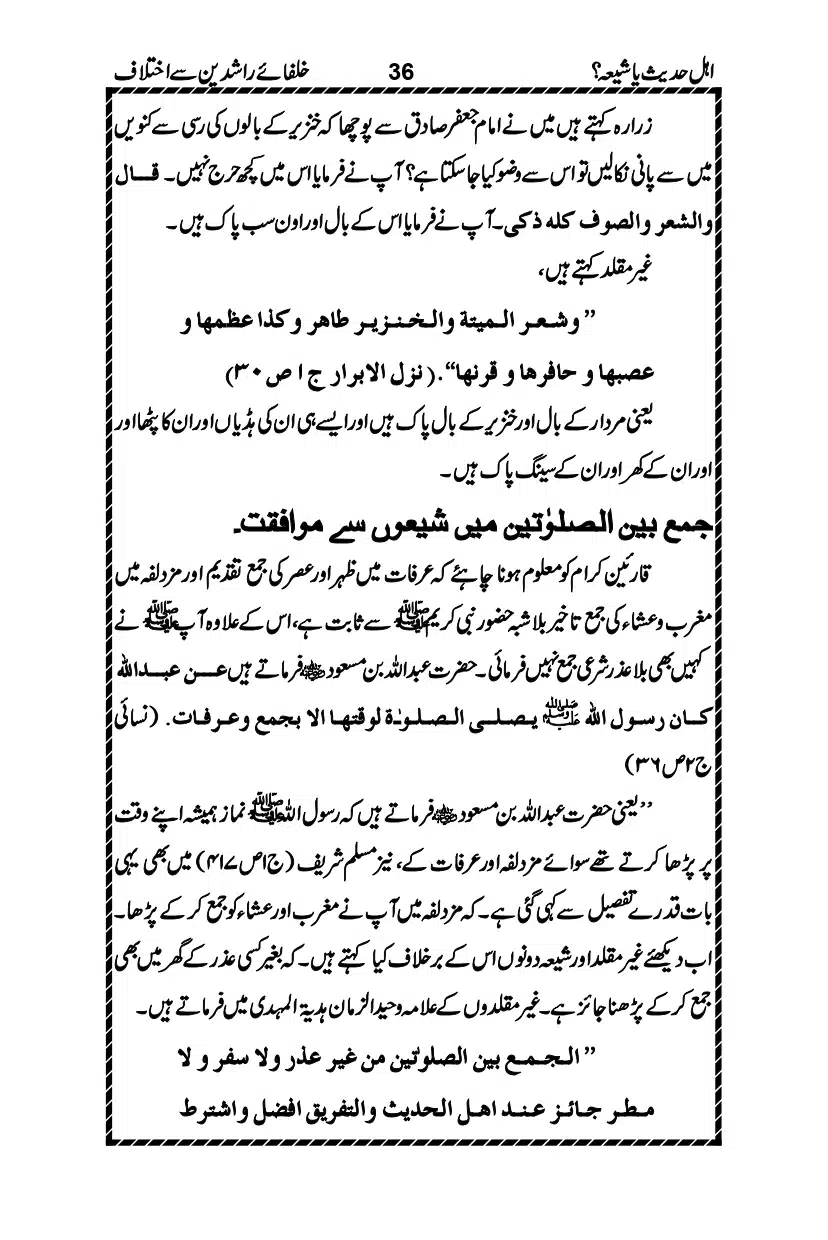 اہل حدیث یا شیعہ؟ 36 خلفائے راشدین سے اختلاف
زرارہ کہتے ہیں میں نے امام جعفر صادق سے پوچھا کہ خنزیر کے بالوں کی رسی سے کنویں
میں سے پانی نکالیں تو اس سے وضو کیا جا سکتا ہے؟ آپ نے فرمایا اس میں کچھ حرج نہیں۔ قال
والشعر والصوف کله ذکی۔ آپ نے فرمایا اس کے بال اور اون سب پاک ہیں۔
غیر مقلد کہتے ہیں،
”وشعر المیتة والخنزیر طاهر وکذا عظمها و
عصبها و حافرها و قرنها“۔ (نزل الابرار ج ا ص ۳۰)
یعنی مردار کے بال اور خنزیر کے بال پاک ہیں اور ایسے ہی ان کی ہڈیاں اور ان کا پٹھا اور
اور ان کے کھر اور ان کے سینگ پاک ہیں۔
جمع بین الصلوٰتین میں شیعوں سے موافقت۔
قارئین کرام کو معلوم ہونا چاہئے کہ عرفات میں ظہر اور عصر کی جمع تقدیم اور مزدلفہ میں
مغرب و عشاء کی جمع تاخیر بلا شبہ حضور نبی کریم ﷺ سے ثابت ہے، اس کے علاوہ آپ ﷺ نے
کہیں بھی بلا عذر شرعی جمع نہیں فرمائی۔ حضرت عبداللہ بن مسعود رضی اللہ عنہ فرماتے ہیں عن عبدالله
کان رسول الله ﷺ یصلی الصلوٰة لوقتها الا بجمع وعرفات۔ (نسائی
ج۲ ص۳۶)
”یعنی حضرت عبداللہ بن مسعود رضی اللہ عنہ فرماتے ہیں کہ رسول اللہ ﷺ نماز ہمیشہ اپنے وقت
پر پڑھا کرتے تھے سوائے مزدلفہ اور عرفات کے، نیز مسلم شریف (ج ا ص ۴۱۷) میں بھی یہی
بات قدرے تفصیل سے کہی گئی ہے۔ کہ مزدلفہ میں آپ نے مغرب اور عشاء کو جمع کر کے پڑھا۔
اب دیکھئے غیر مقلد اور شیعہ دونوں اس کے برخلاف کیا کہتے ہیں۔ کہ بغیر کسی عذر کے گھر میں بھی
جمع کر کے پڑھنا جائز ہے۔ غیر مقلدوں کے علامہ وحید الزمان ہدیۃ المہدی میں فرماتے ہیں۔
”الجمع بین الصلوتین من غیر عذر ولا سفر و لا
مطر جائز عند اهل الحدیث والتفریق افضل واشترط